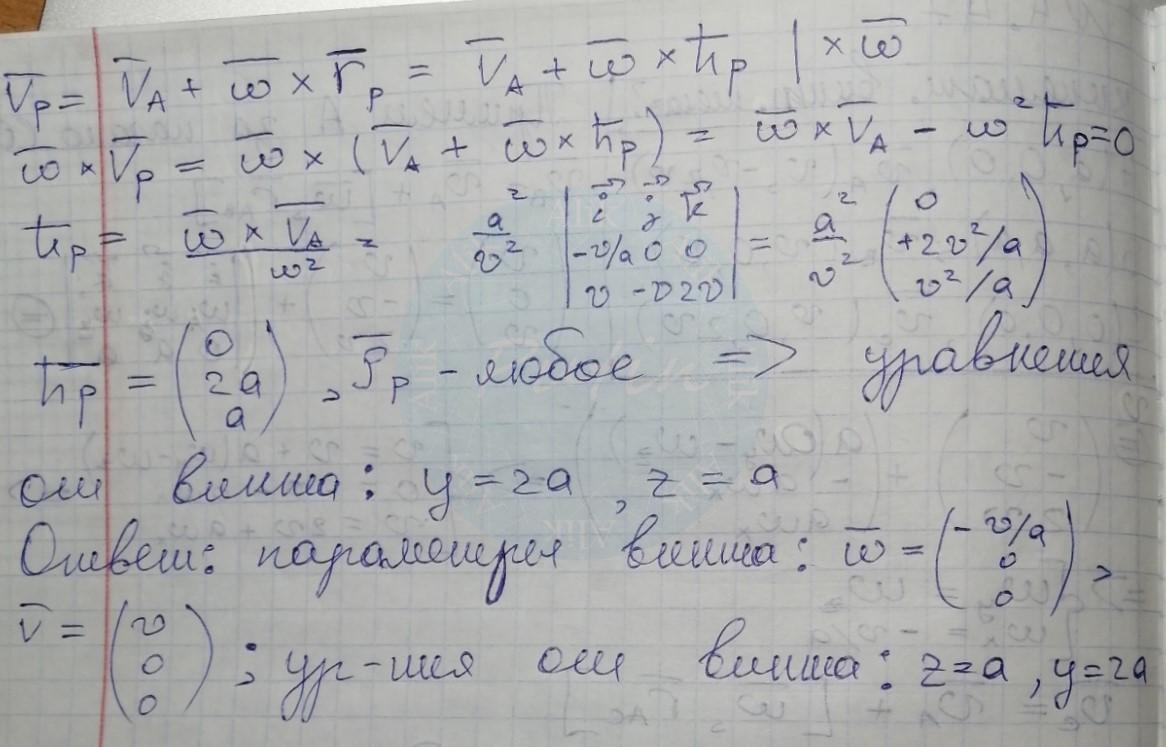 V̄_P = V̄_A + ω̄ × r̄_P = V̄_A + ω̄ × h̄_P | × ω̄
ω̄ × V̄_P = ω̄ × (V̄_A + ω̄ × h̄_P) = ω̄ × V̄_A − ω² h̄_P = 0
h̄_P = (ω̄ × V̄_A)/ω² = a²/v² |i⃗ j⃗ k⃗; −v/a 0 0; v −v 2v| = a²/v² (0; +2v²/a; v²/a)
h̄_P = (0; 2a; a), ρ̄_P - любое => уравнения
оси винта: y = 2a, z = a
Ответ: параметры винта: ω̄ = (−v/a; 0; 0),
v̄ = (v; 0; 0); ур-ния оси винта: z = a, y = 2a